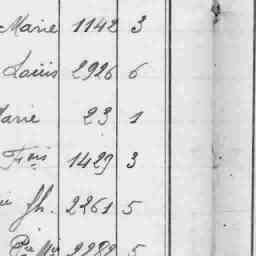 Marie 1142 3
Louis 2926 6
Marie 23 1
Fois 1429 3
Jh. 2261 5
2282 5